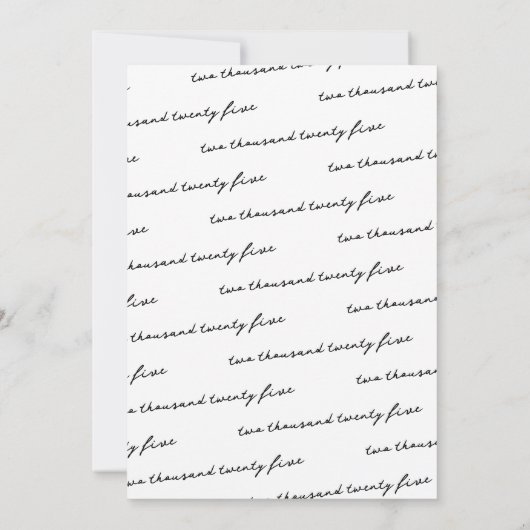 two thousand twenty
two thousand
thousand twenty five
two thousand twenty five
ve
two thousand
thousand twenty five
two thousand twenty five
ive
two thousand
thousand twenty five
two thousand twenty five
five
two thousand
thousand twenty five
two thousand twenty five
five
two thousan
wo thousand twenty five
two thousand twenty five
y five
two thousan
wo thousand twenty five
two thousand twenty five